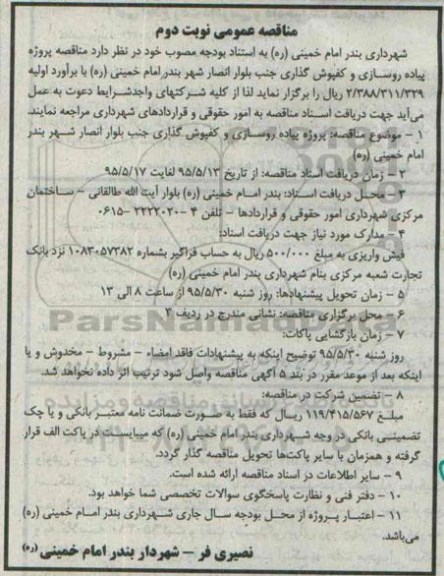 مناقصه عمومی نوبت دوم
شهرداری بندر امام خمینی (ره) به استناد بودجه مصوب خود در نظر دارد مناقصه پروژه
پیاده روسازی و کفپوش گذاری جنب بلوار انصار شهر بندر امام خمینی (ره) با برآورد اولیه
۲/۳۸۸/۳۱۱/۳۲۹ ریال را برگزار نماید لذا از کلیه شرکتهای واجدشرایط دعوت به عمل
می‌آید جهت دریافت اسناد مناقصه به امور حقوقی و قراردادهای شهرداری مراجعه نمایند.
۱ – موضوع مناقصه: پروژه پیاده روسازی و کفپوش گذاری جنب بلوار انصار شهر بندر
امام خمینی (ره)
۲ – زمان دریافت اسناد مناقصه: از تاریخ ۹۵/۵/۱۳ لغایت ۹۵/۵/۱۷
۳ – محل دریافت اسناد: بندر امام خمینی (ره) بلوار آیت الله طالقانی – ساختمان
مرکزی شهرداری امور حقوقی و قراردادها – تلفن ۴ –۲۲۲۲۰۲۰ –۰۶۱۵
۴ – مدارک مورد نیاز جهت دریافت اسناد:
فیش واریزی به مبلغ ۵۰۰/۰۰۰ ریال به حساب فراگیر بشماره ۱۰۸۳۰۵۷۳۸۲ نزد بانک
تجارت شعبه مرکزی بنام شهرداری بندر امام خمینی (ره)
۵ – زمان تحویل پیشنهادها: روز شنبه ۹۵/۵/۳۰ از ساعت ۸ الی ۱۳
۶ – محل برگزاری مناقصه: نشانی مندرج در ردیف ۳
۷ – زمان بازگشایی پاکات:
روز شنبه ۹۵/۵/۳۰ توضیح اینکه به پیشنهادات فاقد امضاء – مشروط – مخدوش و یا
اینکه بعد از موعد مقرر در بند ۵ آگهی مناقصه واصل شود ترتیب اثر داده نخواهد شد.
۸ – تضمین شرکت در مناقصه:
مبلغ ۱۱۹/۴۱۵/۵۶۷ ریال که فقط به صورت ضمانت نامه معتبر بانکی و یا چک
تضمینی بانکی در وجه شهرداری بندر امام خمینی (ره) که میبایست در پاکت الف قرار
گرفته و همزمان با سایر پاکت‌ها تحویل مناقصه گذار گردد.
۹ – سایر اطلاعات در اسناد مناقصه ارائه شده است.
۱۰ – دفتر فنی و نظارت پاسخگوی سوالات تخصصی شما خواهد بود.
۱۱ – اعتبار پروژه از محل بودجه سال جاری شهرداری بندر امام خمینی (ره)
می‌باشد.
نصیری فر – شهردار بندر امام خمینی (ره)